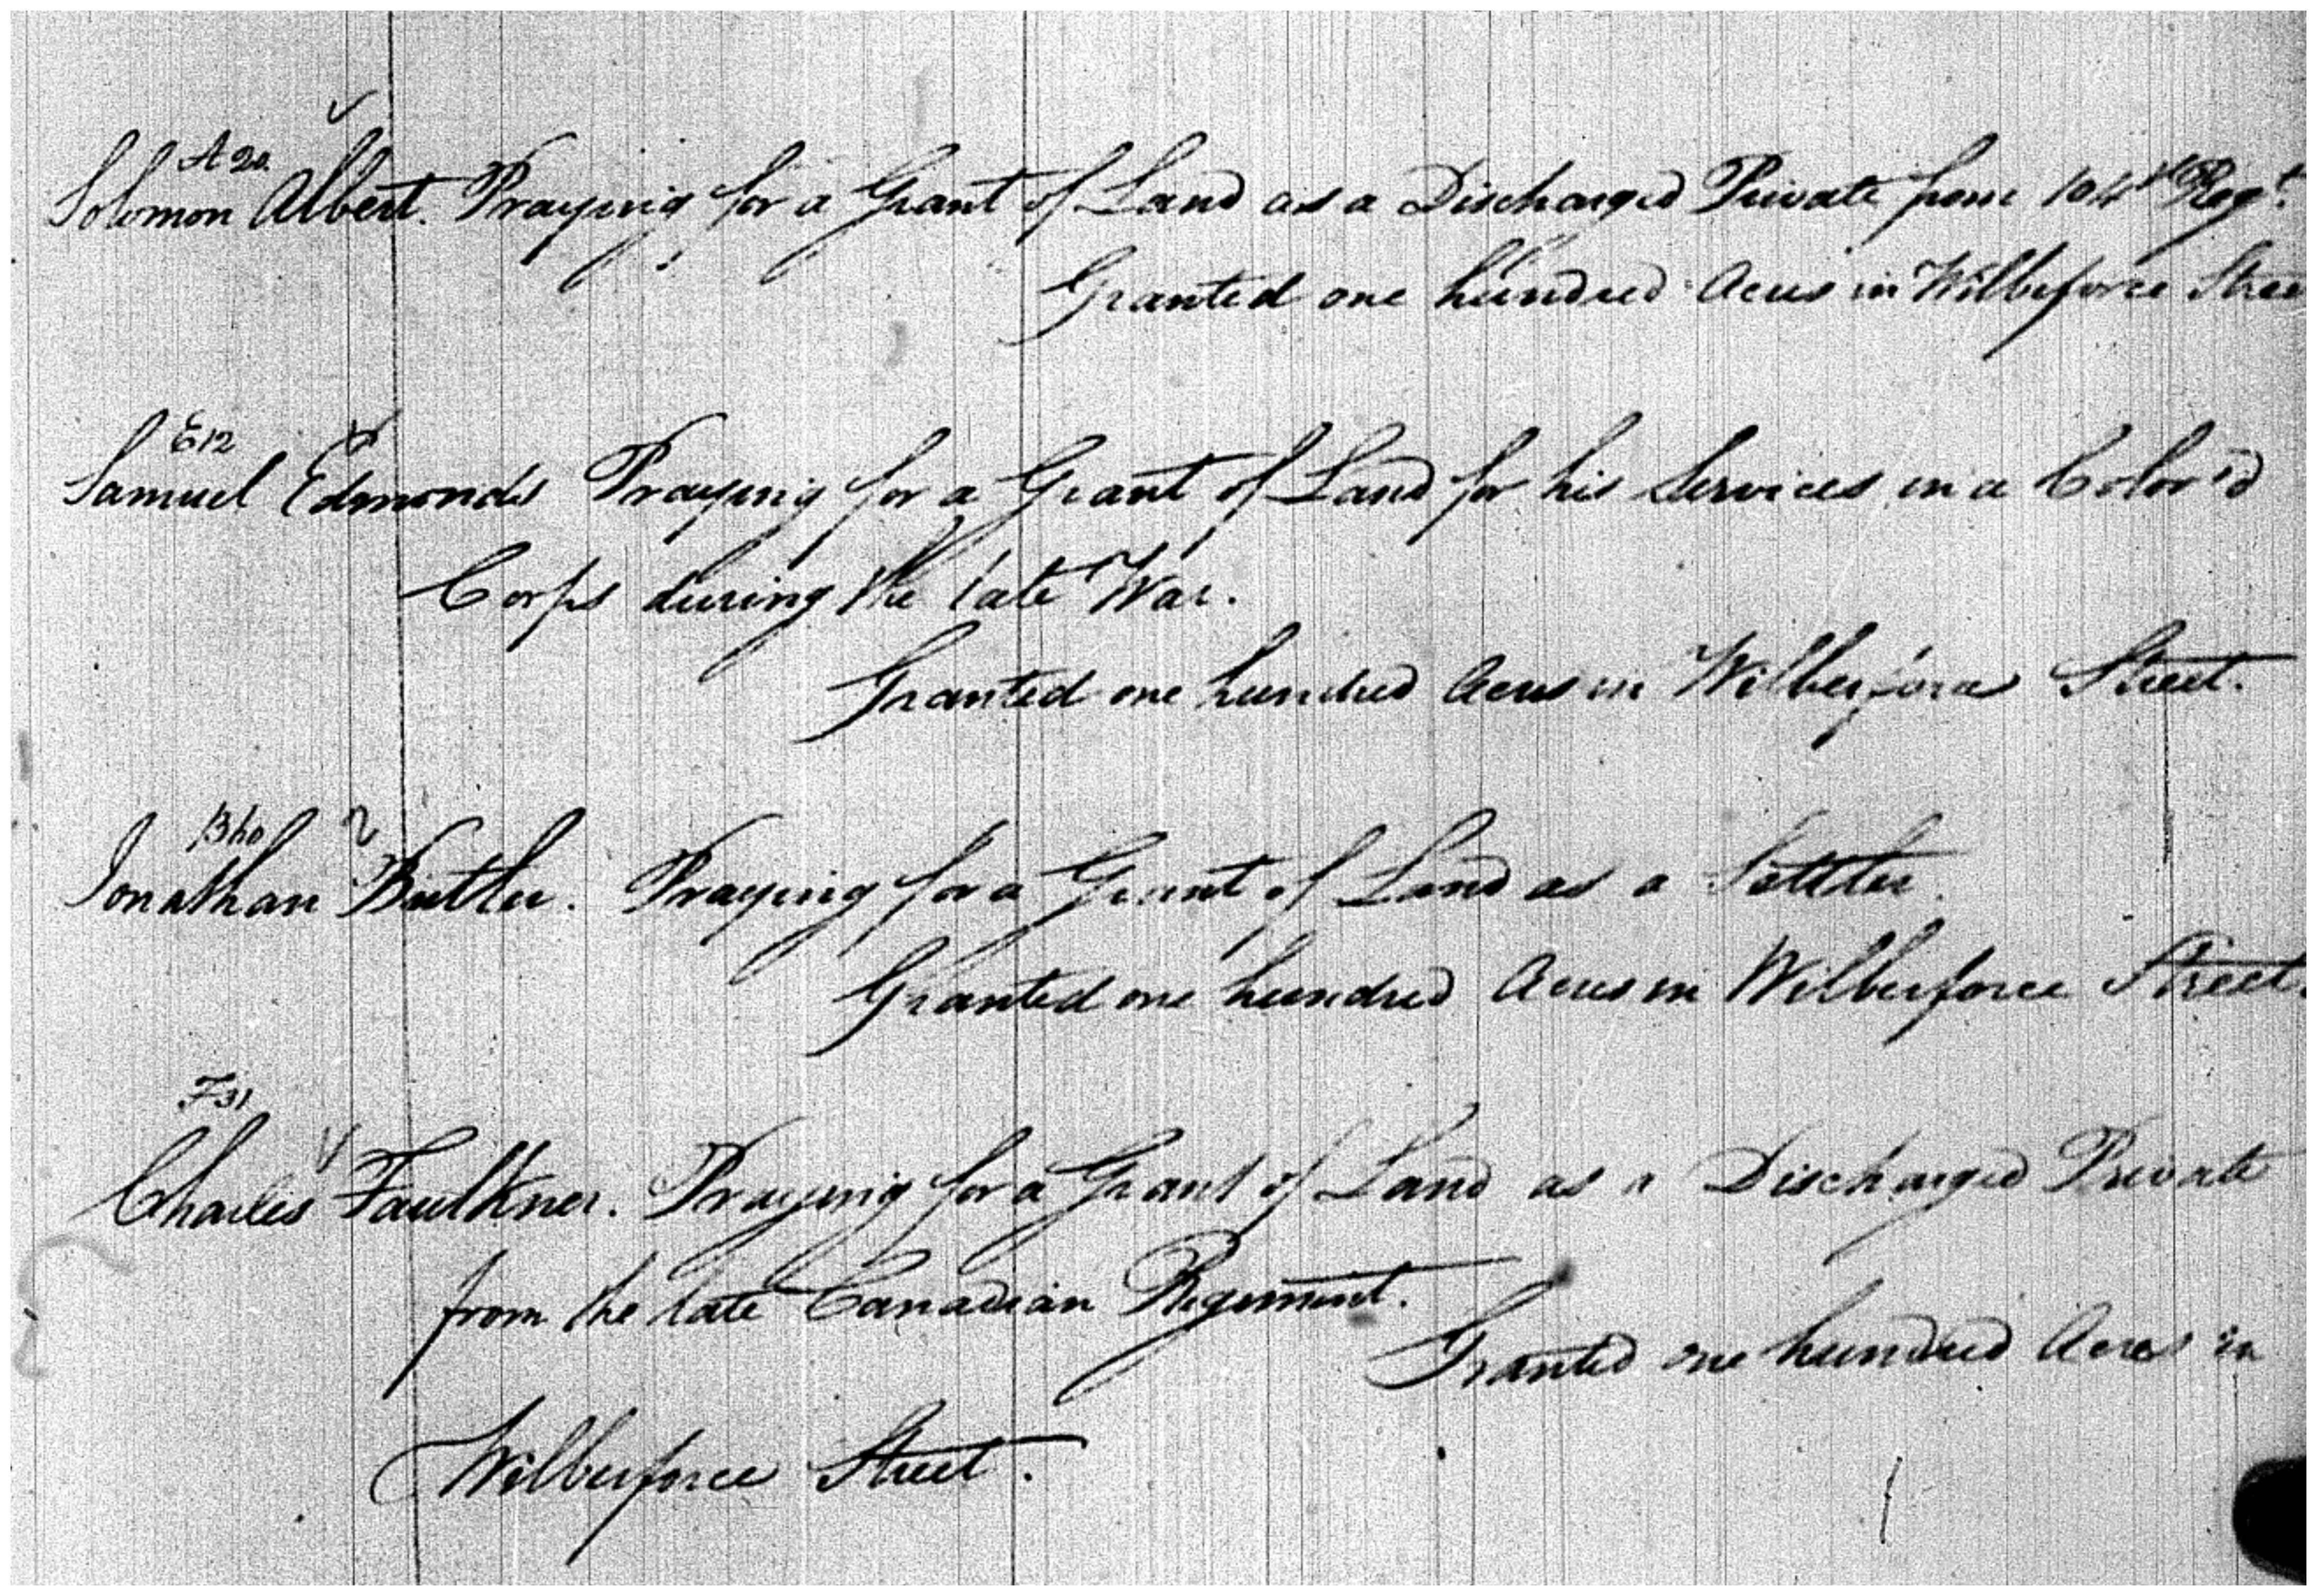 A 20
Solomon Albert. Praying for a Grant of Land as a Discharged Private from 104th Regt.
Granted one hundred Acres in Wilberforce Stree
E12
Samuel Edmonds Praying for a Grant of Land for his Services in a Color'd
Corps during the late War.
Granted one hundred Acres in Wilberforce Street.
Jonathan Butler. Praying for a Grant of Land as a Settler.
Granted one hundred Acres in Wilberforce Street.
F31
Charles Faulkner. Praying for a Grant of Land as a Discharged Private
from the late Canadian Regiment.
Granted one hundred Acres in
Wilberforce Street.